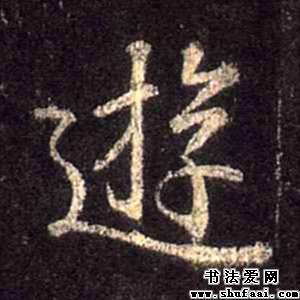 遊
书法爱网
www.shufaai.com